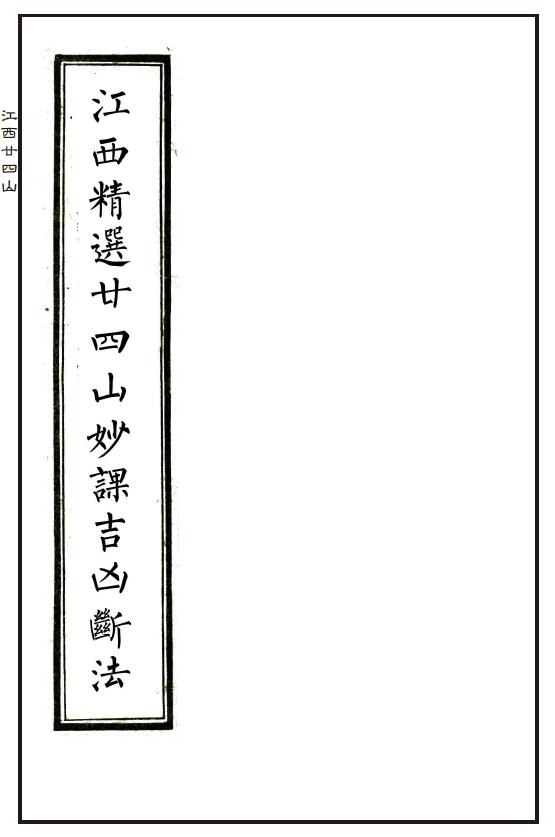 江西精選廿四山妙課吉凶斷法
江西廿四山